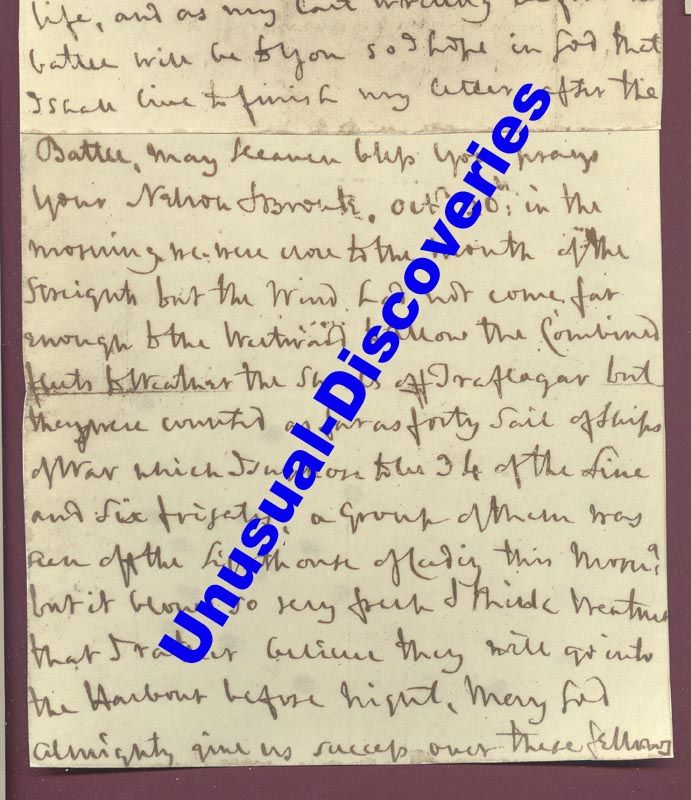 life, and as my last writing before
battle will be to You so I hope in God that
I shall live to finish my letter after the
Battle, may Heaven bless You prays
Your Nelson & Bronte, Octr 20th, in the
morning we were close to the mouth of the
Streights but the Wind had not come far
enough to the Westward to allow the Combined
fleets to Weather the Shoals off Traflagar but
they were counted as far as forty Sail of Ships
of War which I suppose to be 34 of the Line
and Six frigates, a Group of them was
seen off the Lighthouse of Cadiz this Morng
but it blows so very fresh & thick weather
that I rather believe they will go into
the Harbour before night, May God
Almighty give us success over these fellows
Unusual-Discoveries